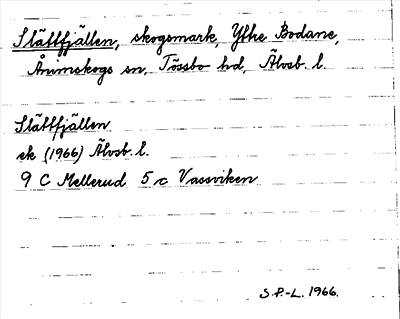 Slättfjällen, skogsmark, Yttre Bodane,
Ånimskogs sn, Tössbo hd, Älvsb. l.
Slättfjällen
ek (1966) Älvsb. l.
9 C Mellerud 5 c Vassviken
S.P.-L. 1966.